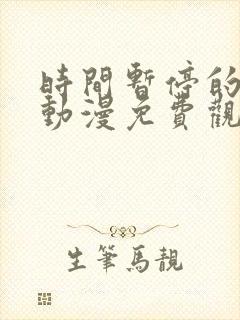 時間暫停的
動漫免費觀
生筆馬靚